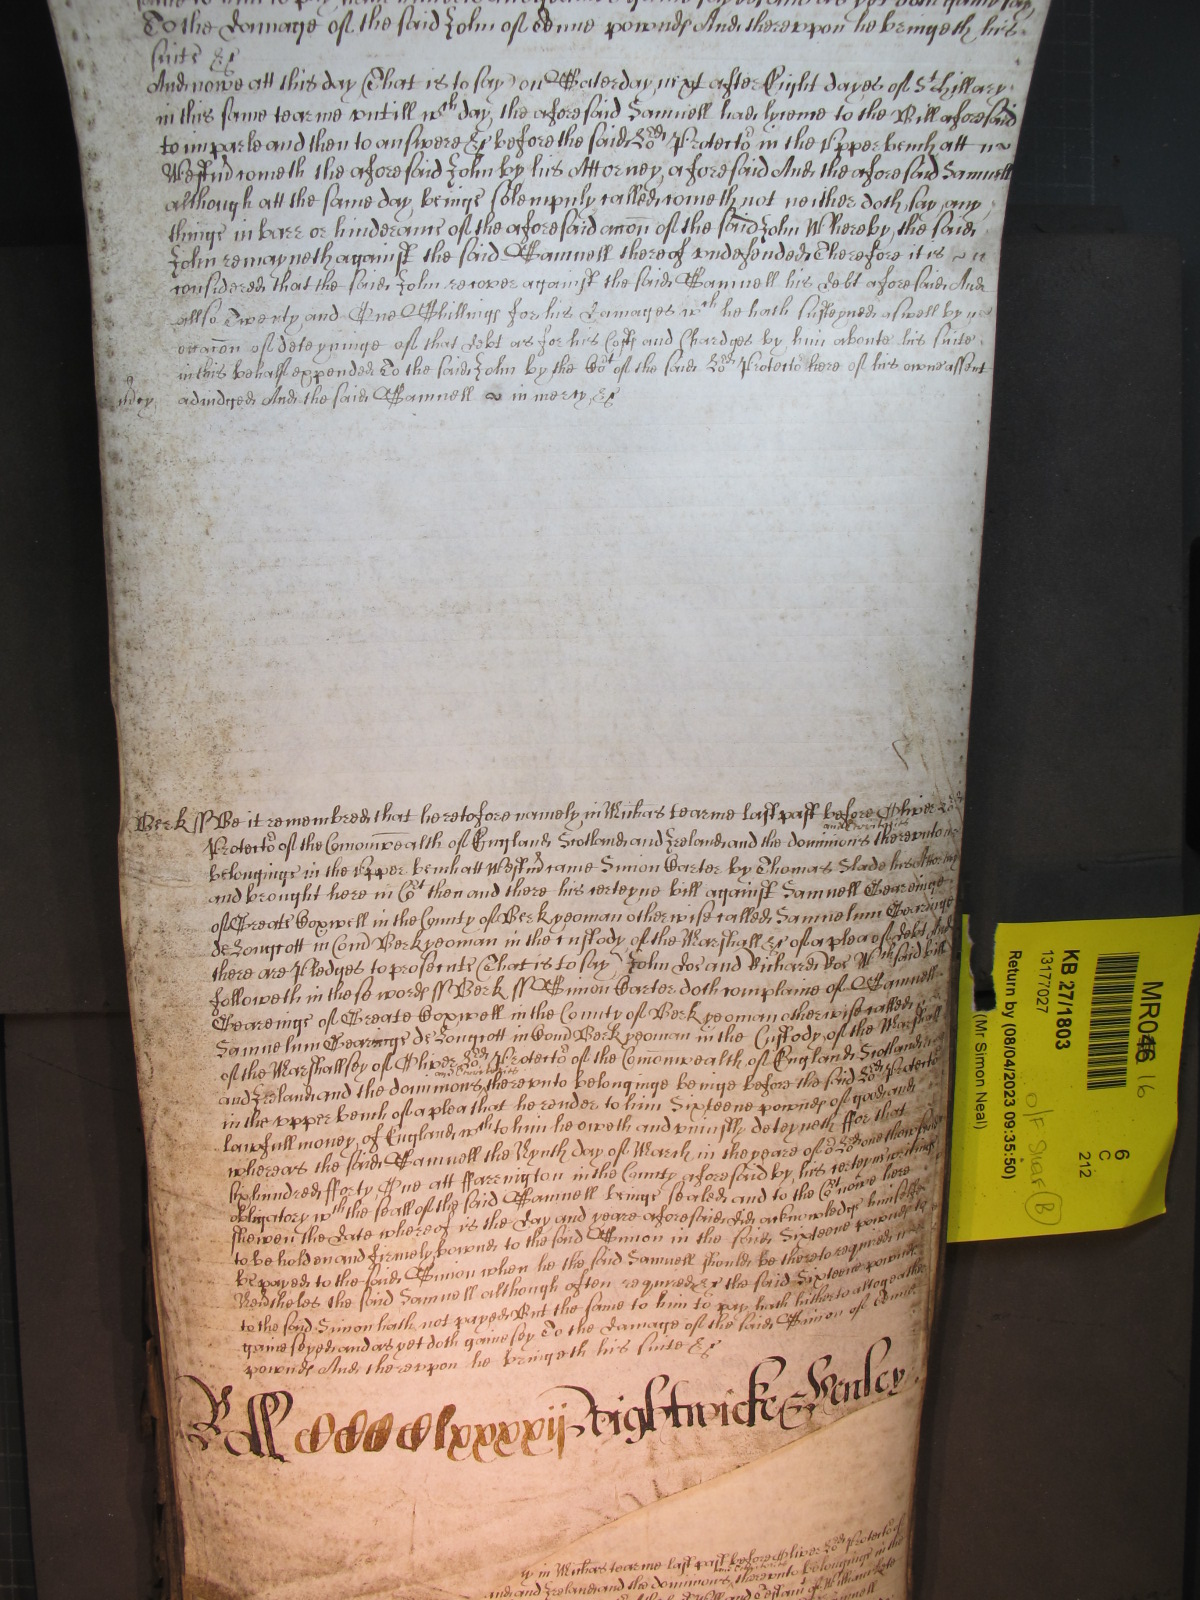 To the damage of the said John of tenne pownds And therevppon he bringeth his
suite &c
And nowe att this day (That is to say) on Saterday next after Eight dayes of St hillary
in this same tearme vntill wch day the aforesaid Samuell had lycence to the Bill aforesaid
to imparle and then to answere &c before the said Lord Protector in the vpper bench att
Westmr cometh the aforesaid John by his Attorney aforesaid And the aforesaid Samuell
although att the same day beinge solempnly called cometh not neither doth say any
thinge in barr or hinderance of the aforesaid accon of the said John Whereby the said
John remayneth against the said Samuell thereof vndefended Therefore it is
considered that the said John recover against the said Samuell his debt aforesaid And
allso Twenty and One Shillings for his damages wch he hath susteyned aswell by
occacon of deteyninge of that debt as for his Costs and Chardges by him aboute his suite
in this behalf expended To the said John by the Cot of the said Lord Protector here of his owne assent
adiudged And the said Samuell in mercy &c
mercy
Berk ss Be it remembred that heretofore namely in Michas tearme last past before Oliver Lord
Protector of the Comonwealth of England Scotland and Ireland and the dominions and territories therevnto
belonginge in the vpper bench att Westmr came Simon Carter by Thomas Slade his Attorny
and brought here in Cot then and there his certeyne bill against Samuell Gearinge
of Greate Coxwell in the County of Berk yeoman otherwise called Samuelum Gearinge
de Longcott in Com Berk yeoman in the custody of the Marshall &c of a plea of debt And
there are Pledges to prosecute (That is to say) John Doe and Richard Roe Wch said bill
followeth in these words ss Berk ss Simon Carter doth complaine of Samuell
Gearinge of Greate Coxwell in the County of Berk yeoman otherwise called
Samuelum Gearinge de Longcott in Com Berk yeoman in the Custody of the Marshall
of the Marshallsey of Oliver Lord Protector of the Comonwealth of England Scotland
and Ireland and the dominions and territories therevnto belonginge beinge before the said Lord Protector
in the vpper bench of a plea that he render to him Sixteene pownds of good and
lawfull money of England wch to him he oweth and vniustly deteyneth ffor that
whereas the said Samuell the Nynth day of March in the yeare of or Lord one thowsand
six hundred fforty One att ffarrington in the County aforesaid by his certeyne writinge
obligatory wth the seall of the said Samuell beinge sealed and to the Cot nowe here
shewen the Date whereof is the Day and yeare aforesaid did acknowledge himselfe
to be holden and firmely bownd to the said Simon in the said Sixteene pownds to
be payed to the said Simon when he the said Samuell should be thereto required
Nevertheles the said Samuell although often required &c the said Sixteene pownds
to the said Simon hath not payed But the same to him to pay hath hitherto altogeather
gainesayed and as yet doth gainesay To the damage of the said Simon of tenne
pownds And therevppon he bringeth his suite &c
Roll CCCCClxxxxij Wightwicke & Henley
in Michas tearme last past before Oliver Lord Protector of
and Ireland and the dominions and territories therevnto belonginge in the
MR046 16
6
C
212
KB 27/1803
13177027
Return by (08/04/2023 09:35:50)
(Mr Simon Neal)
B